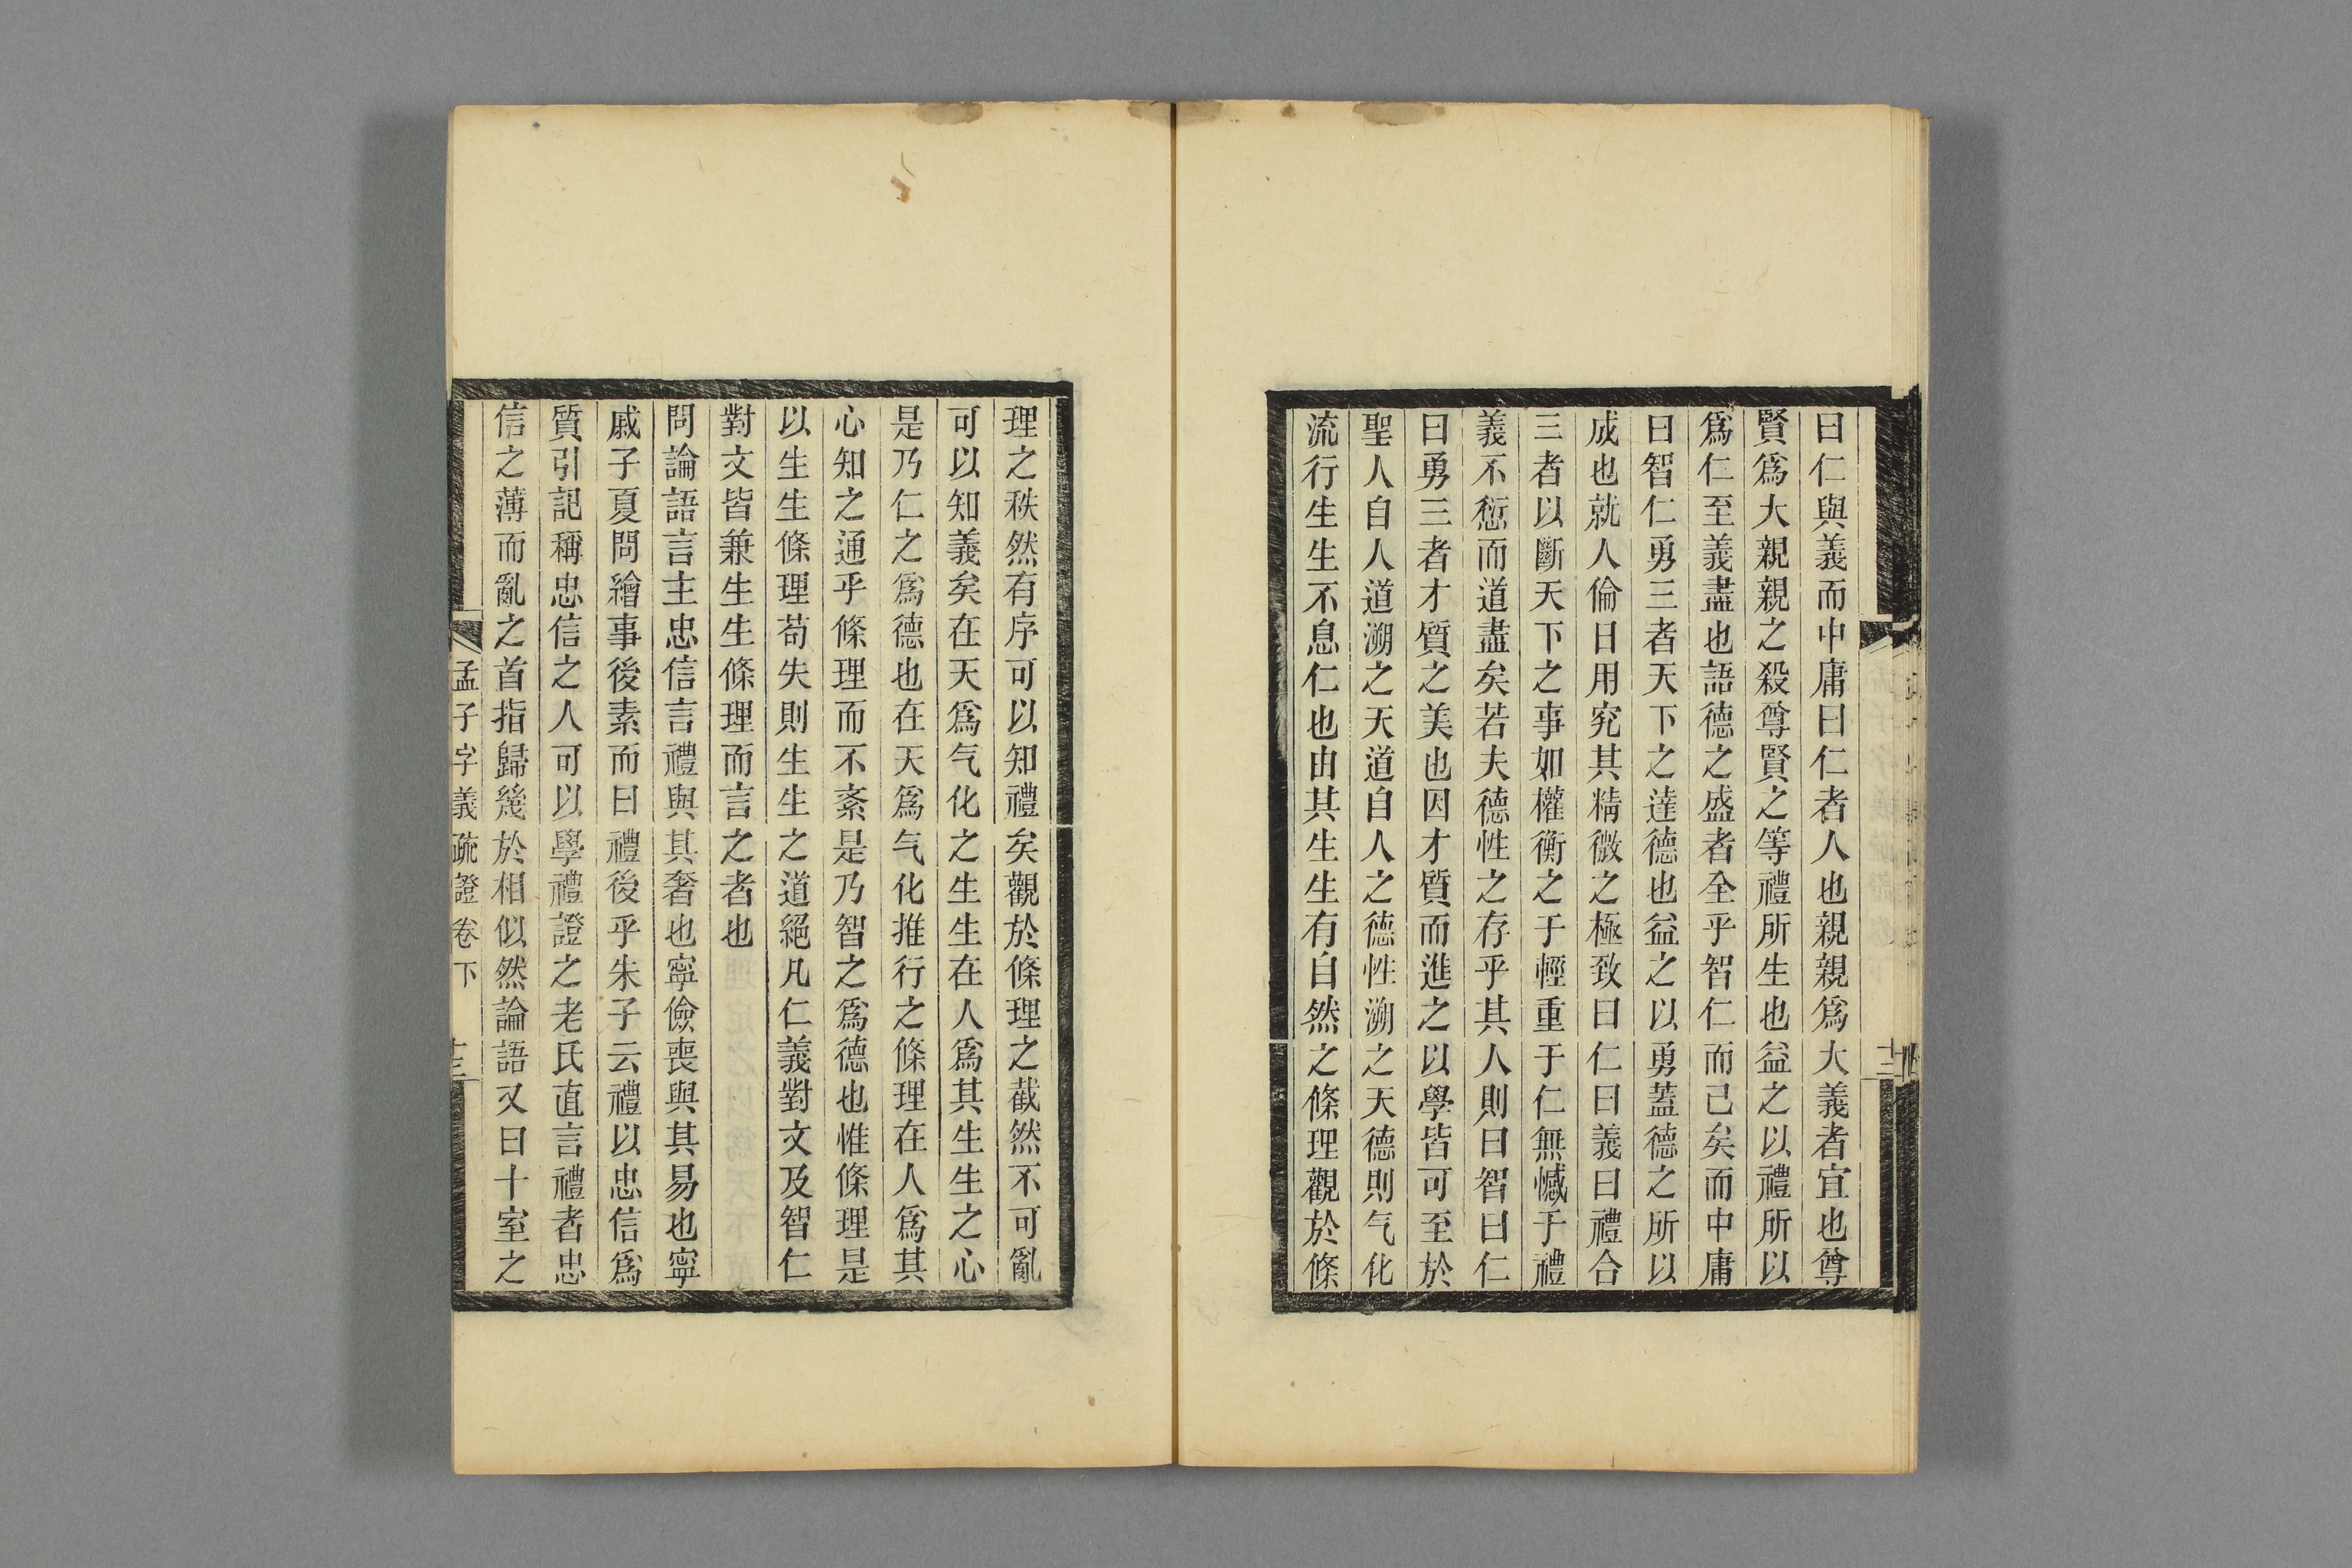 曰仁與義而中庸曰仁者人也親親爲大義者宜也尊
賢爲大親親之殺尊賢之等禮所生也益之以禮所以
爲仁至義盡也語德之盛者全乎智仁而已矣而中庸
曰智仁勇三者天下之達德也益之以勇蓋德之所以
成也就人倫日用究其精微之極致曰仁曰義曰禮合
三者以斷天下之事如權衡之于輕重于仁無憾于禮
義不愆而道盡矣若夫德性之存乎其人則曰智曰仁
曰勇三者才質之美也因才質而進之以學皆可至於
聖人自人道溯之天道自人之德性溯之天德則气化
流行生生不息仁也由其生生有自然之條理觀於條
理之秩然有序可以知禮矣觀於條理之截然不可亂
可以知義矣在天爲气化之生生在人爲其生生之心
是乃仁之爲德也在天爲气化推行之條理在人爲其
心知之通乎條理而不紊是乃智之爲德也惟條理是
以生生條理苟失則生生之道絕凡仁義對文及智仁
對文皆兼生生條理而言之者也
問論語言主忠信言禮與其奢也寧儉喪與其易也寧
戚子夏問繪事後素而曰禮後乎朱子云禮以忠信爲
質引記稱忠信之人可以學禮證之老氏直言禮者忠
信之薄而亂之首指歸幾於相似然論語又曰十室之
孟子字義疏證卷下
十三